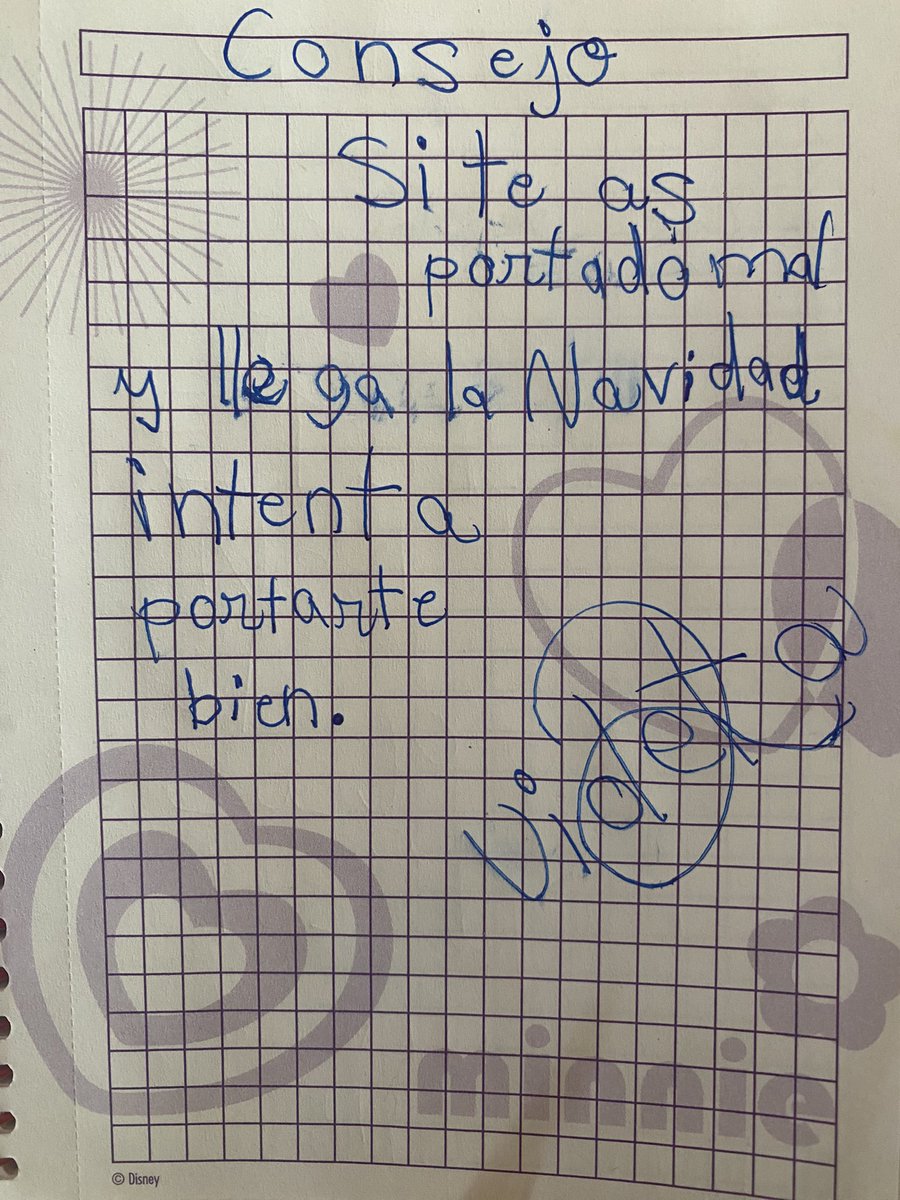 Consejo
Si te as
portado mal
y llega la Navidad
intenta
portarte
bien.
minnie
© Disney